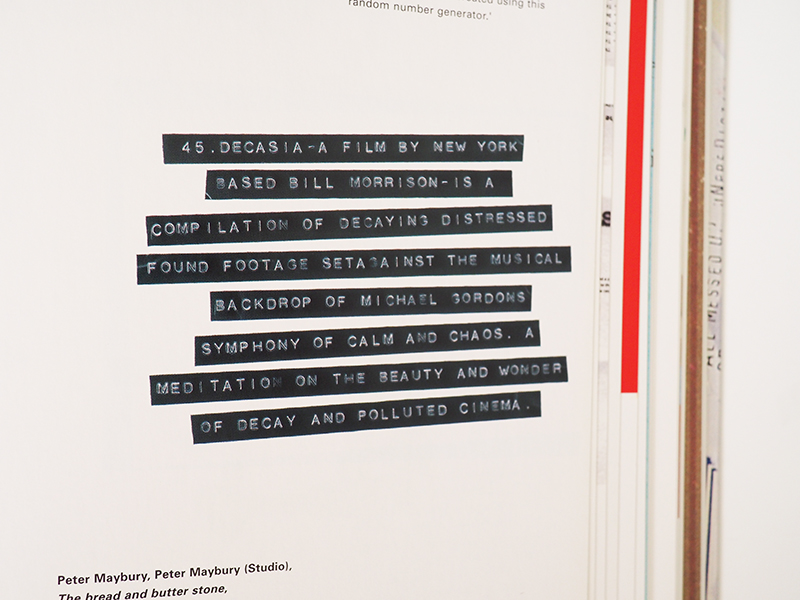 random number generator.'
45.DECASIA-A FILM BY NEW YORK
BASED BILL MORRISON-IS A
COMPILATION OF DECAYING DISTRESSED
FOUND FOOTAGE SETAGAINST THE MUSICAL
BACKDROP OF MICHAEL GORDONS
SYMPHONY OF CALM AND CHAOS. A
MEDITATION ON THE BEAUTY AND WONDER
OF DECAY AND POLLUTED CINEMA.
Peter Maybury, Peter Maybury (Studio),
The bread and butter stone,
ALL MESSED UP